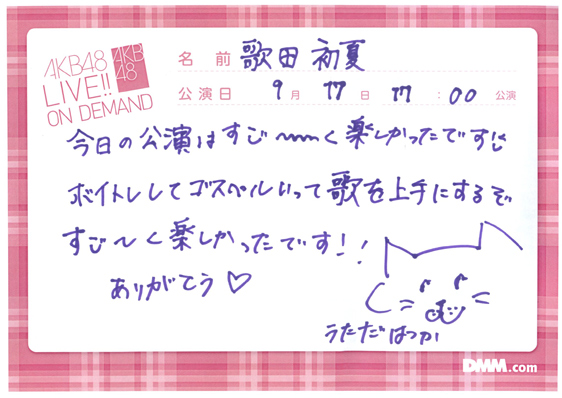 AKB48
LIVE!!
ON DEMAND
AKB
48
名前 歌田 初夏
公演日 9月 17日 17:00 公演
今日の公演はすご〜〜く楽しかったです
ボイトレしてゴスペルいって歌を上手にするぞ
すご〜く楽しかったです!!
ありがとう♡
うただはつか
DMM.com